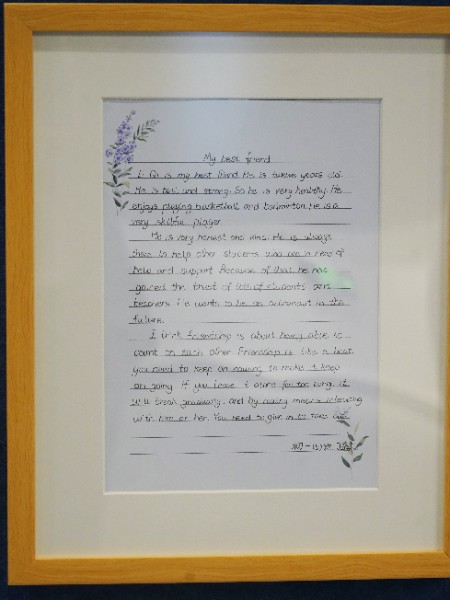 My best friend
Li Qi is my best friend. He is twelve years old.
He is tall and strong. So he is very healthy. He
enjoys playing basketball and badminton. He is a
very skillful player.
He is very honest and kind. He is always
there to help other students who are in need of
help and support. Because of that he has
gained the trust of lots of students and
teachers. He wants to be an astronaut in the
future.
I think friendship is about being able to
count on each other. Friendship is like a boat.
You need to keep on rowing to make it keep
on going. If you leave it alone for too long, it
will break gradually. and by rowing means
with him or her. You need to give in to
初一